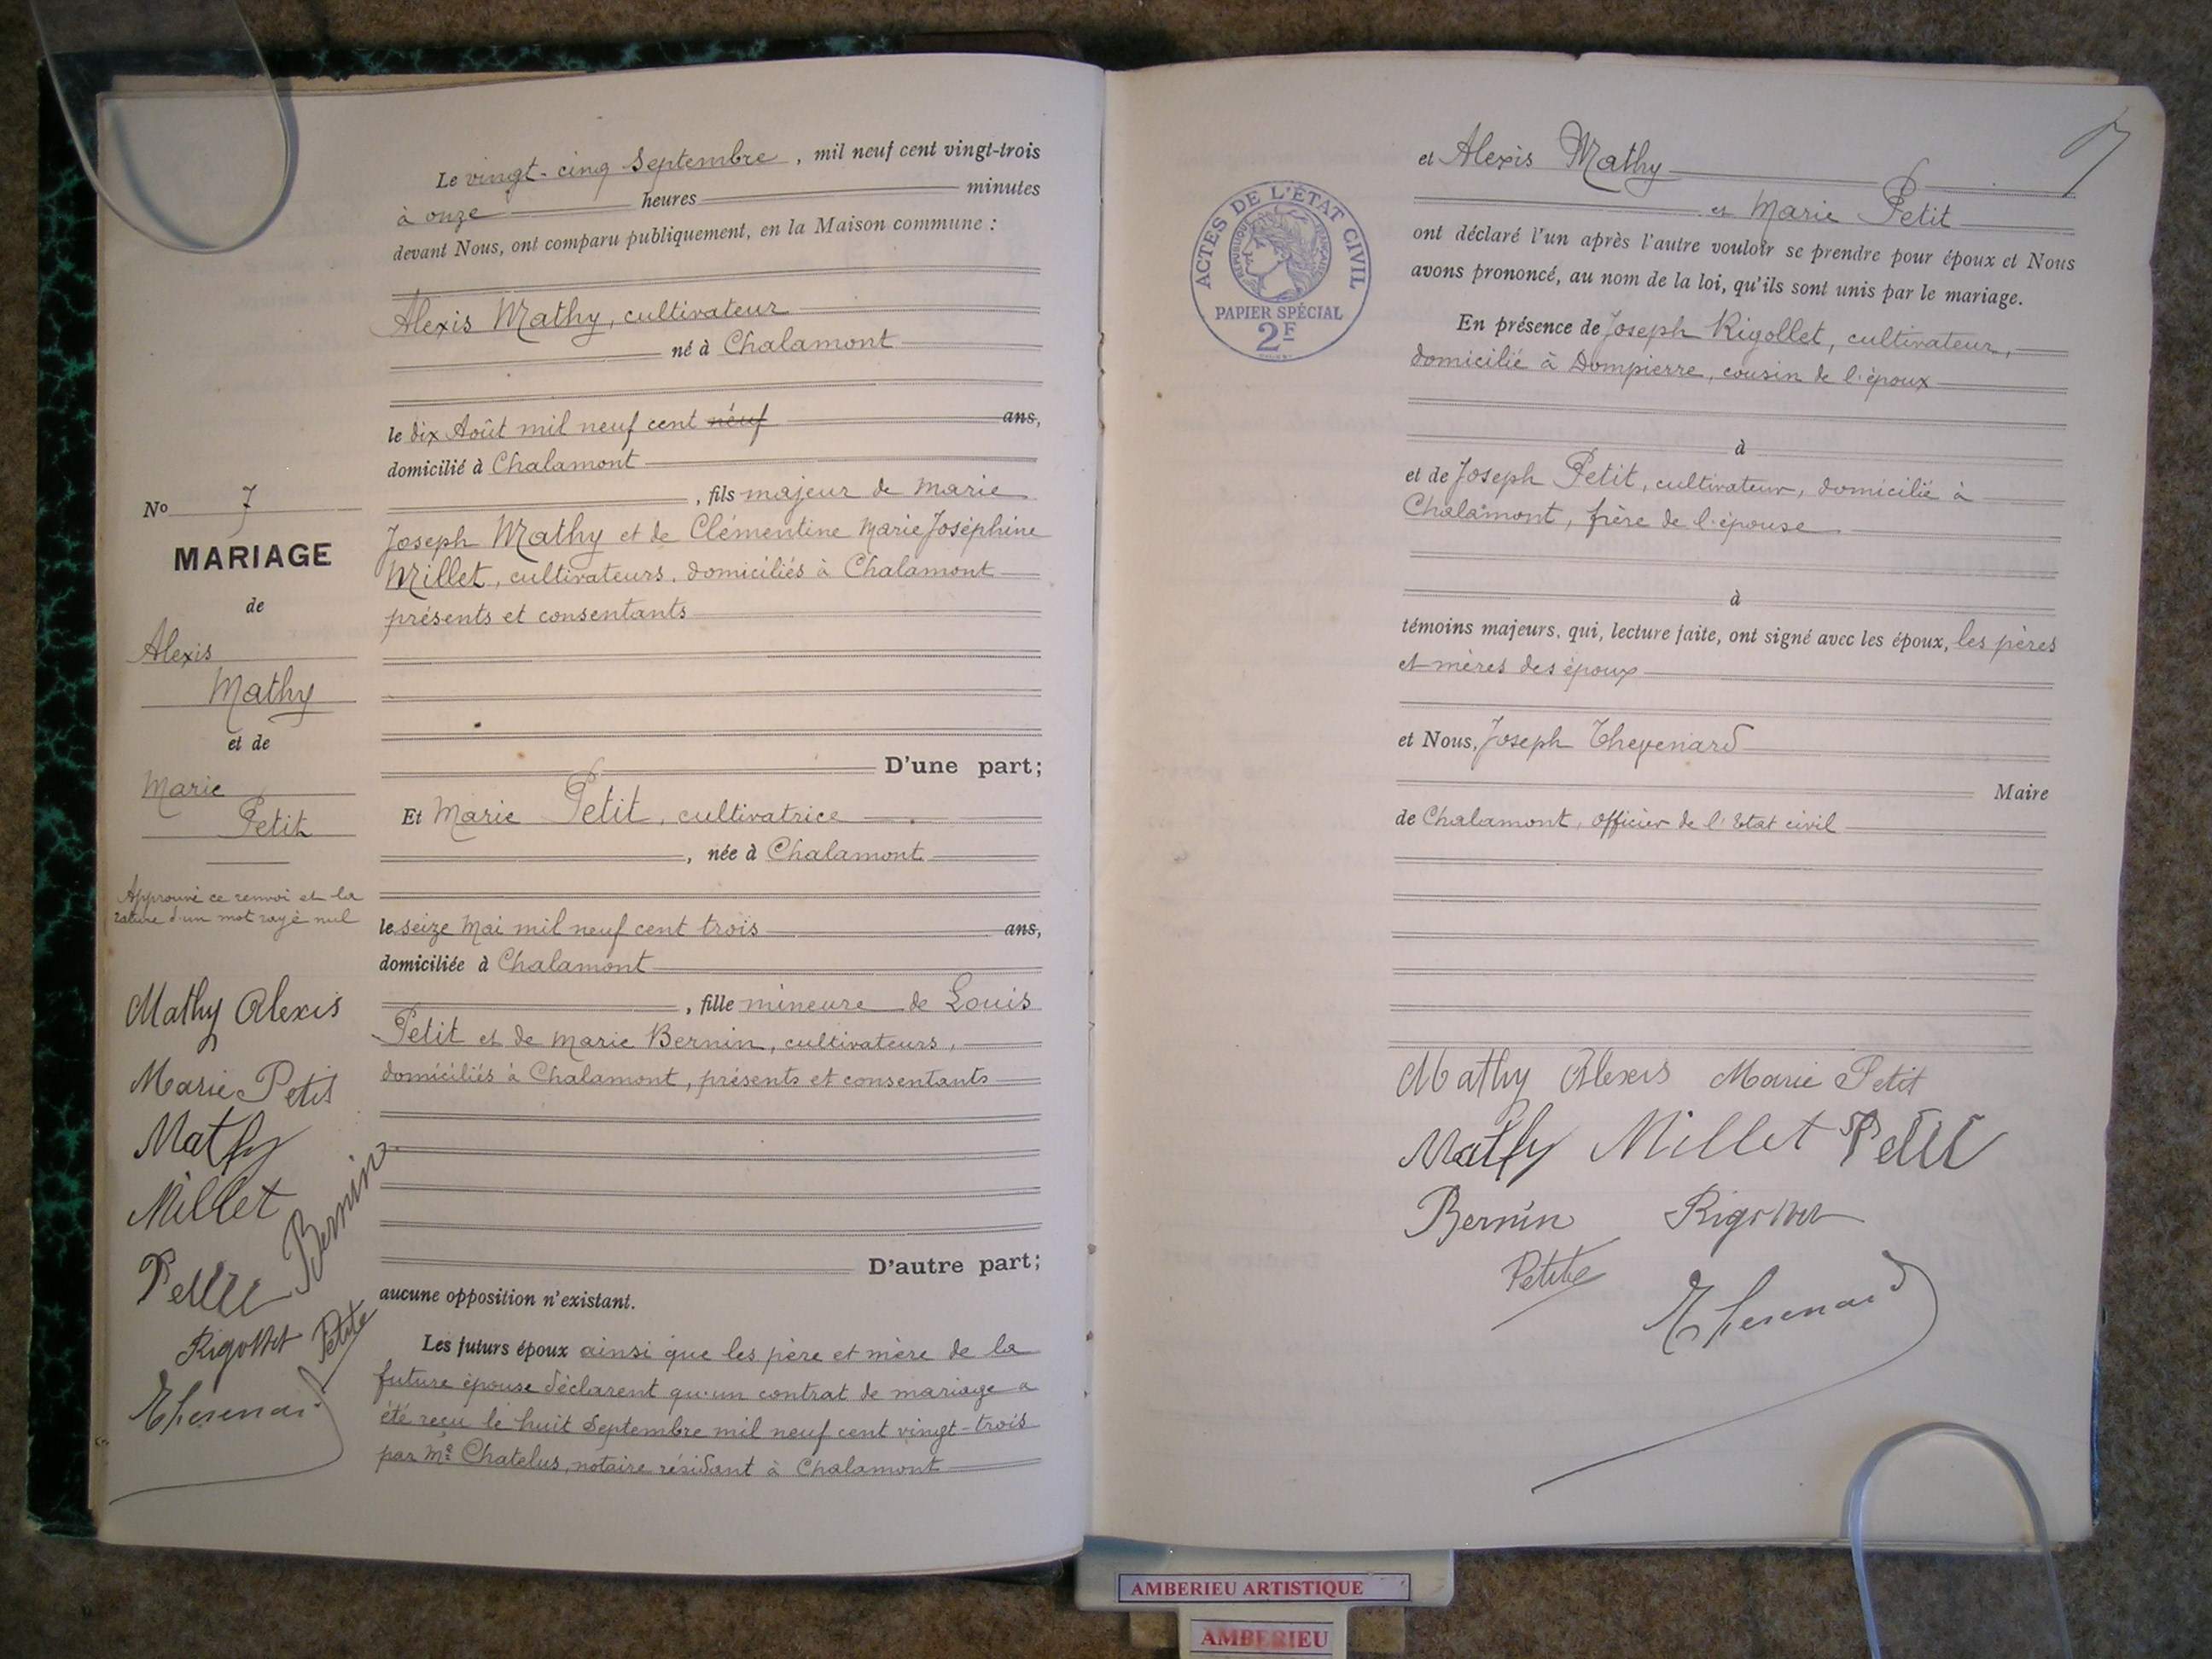 Le vingt-cinq Septembre, mil neuf cent vingt-trois
à onze heures minutes
devant Nous, ont comparu publiquement, en la Maison commune :
Alexis Mathy, cultivateur
né à Chalamont
le dix Août mil neuf cent neuf ans,
domicilié à Chalamont
, fils majeur de Marie
Joseph Mathy et de Clémentine Marie Joséphine
Millet, cultivateurs, domiciliés à Chalamont
présents et consentants
D'une part;
Et Marie Petit, cultivatrice
, née à Chalamont
le seize Mai mil neuf cent trois ans,
domiciliée à Chalamont
, fille mineure de Louis
Petit et de Marie Bernin, cultivateurs,
domiciliés à Chalamont, présents et consentants
D'autre part;
aucune opposition n'existant.
Les futurs époux ainsi que les père et mère de la
future épouse déclarent qu'un contrat de mariage a
été reçu le huit Septembre mil neuf cent vingt-trois
par Me Chatelus, notaire résidant à Chalamont
No 7
MARIAGE
de
Alexis
Mathy
et de
Marie
Petit
Approuvé ce renvoi et la
rature d'un mot rayé nul
Mathy Alexis
Marie Petit
Mathy
Millet
Bernin
Petit
Rigollet
Petit
Thevenard
7
et Alexis Mathy
et Marie Petit
ont déclaré l'un après l'autre vouloir se prendre pour époux et Nous
avons prononcé, au nom de la loi, qu'ils sont unis par le mariage.
ACTES DE L'ÉTAT CIVIL
RÉPUBLIQUE FRANÇAISE
PAPIER SPÉCIAL
2F
En présence de Joseph Rigollet, cultivateur,
domicilié à Dompierre, cousin de l'époux
à
et de Joseph Petit, cultivateur, domicilié à
Chalamont, frère de l'épouse
à
témoins majeurs, qui, lecture faite, ont signé avec les époux, les pères
et mères des époux
et Nous, Joseph Thevenard
Maire
de Chalamont, officier de l'Etat civil
Mathy Alexis Marie Petit
Mathy Millet Petit
Bernin Rigollet
Petit
Thevenard
AMBERIEU ARTISTIQUE
AMBERIEU